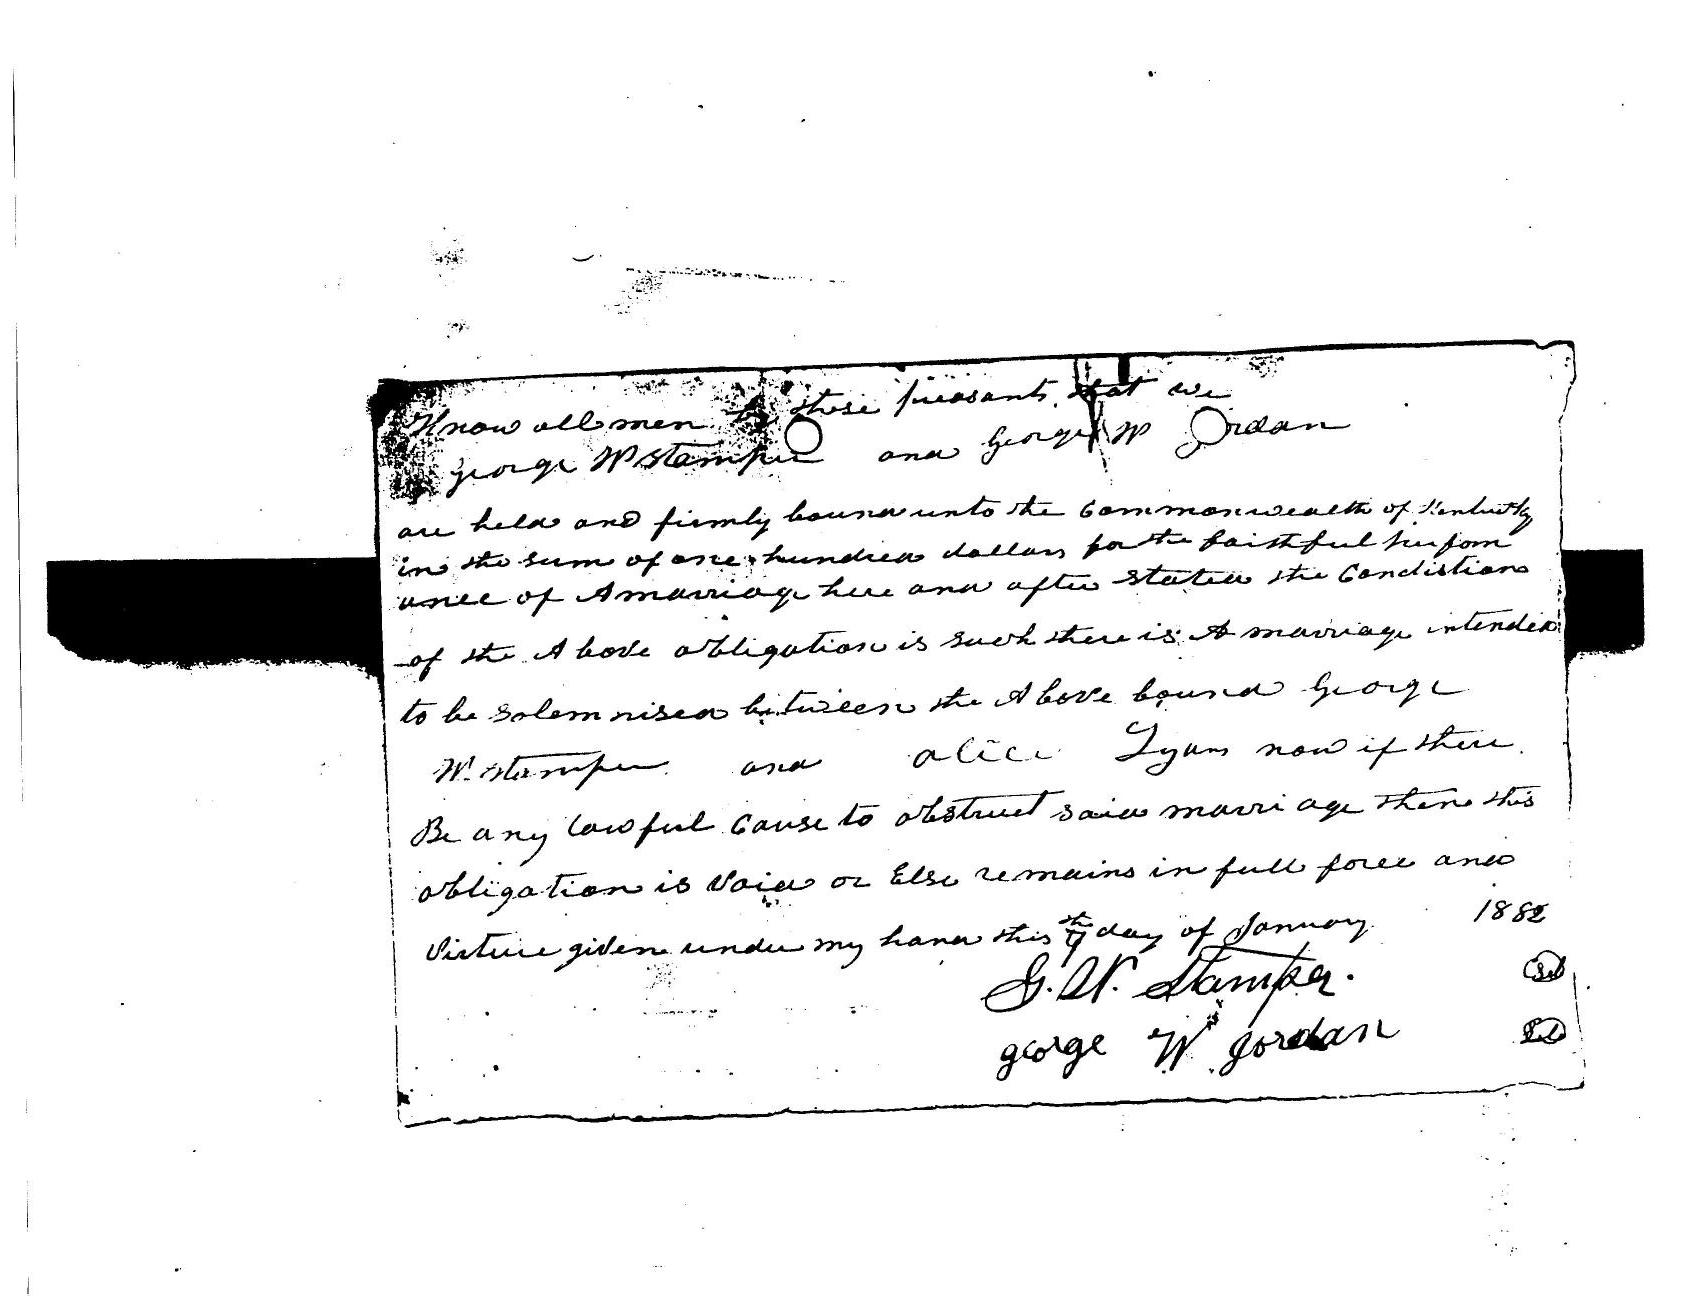 Know all men by these preasants that we
George W Stamper and George W Jordan
are held and firmly bound unto the Commonwealth of Kentucky
in the sum of one hundred dollars for the faithful perfom
ance of A marriage here and after stated the Condistion
of the Above obligation is such there is A marriage intended
to be Solemnised between the Above bound George
W. Stamper and alice Lyons now if there
Be any lawful Cause to obstruct said marriage then this
obligation is Void or Else remains in full force and
Virtue given under my hand this 7th day of January 1882
G. W. Stamper.
george W Jordan